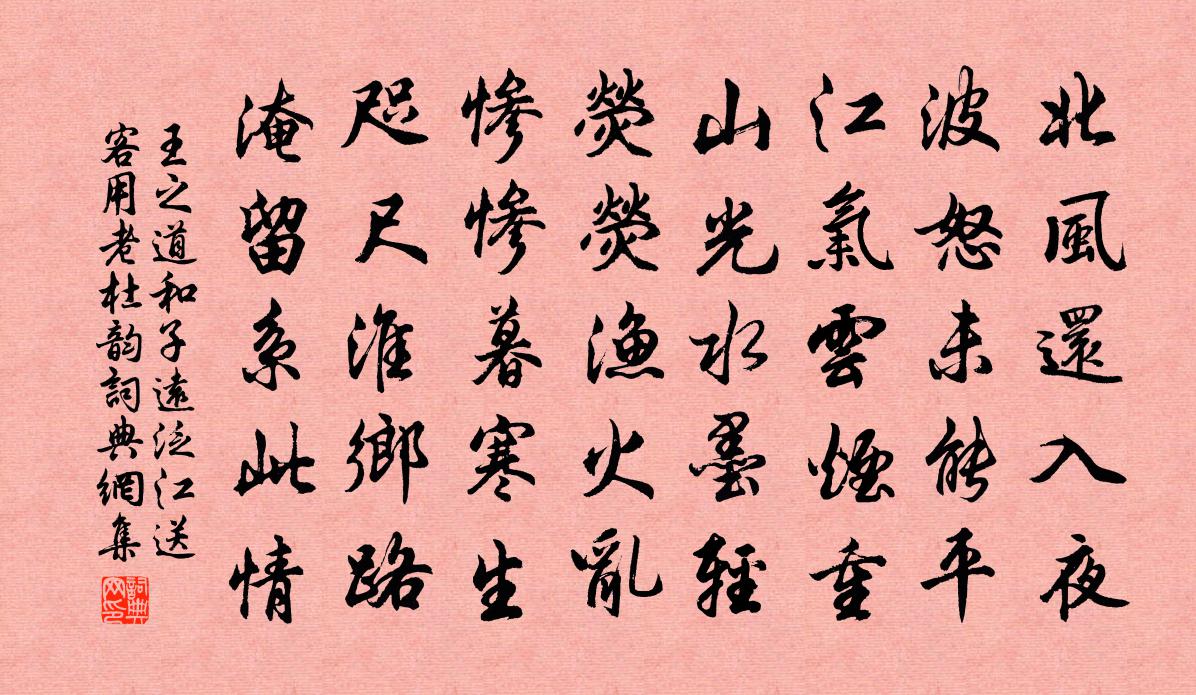 北風還入夜
波怒未能平
江氣雲煙重
山光水墨輕
熒熒漁火亂
慘慘暮寒生
咫尺淮鄉路
淹留系此情
王之道和子遠泛江送
客用老杜韵詞典網集
詞典